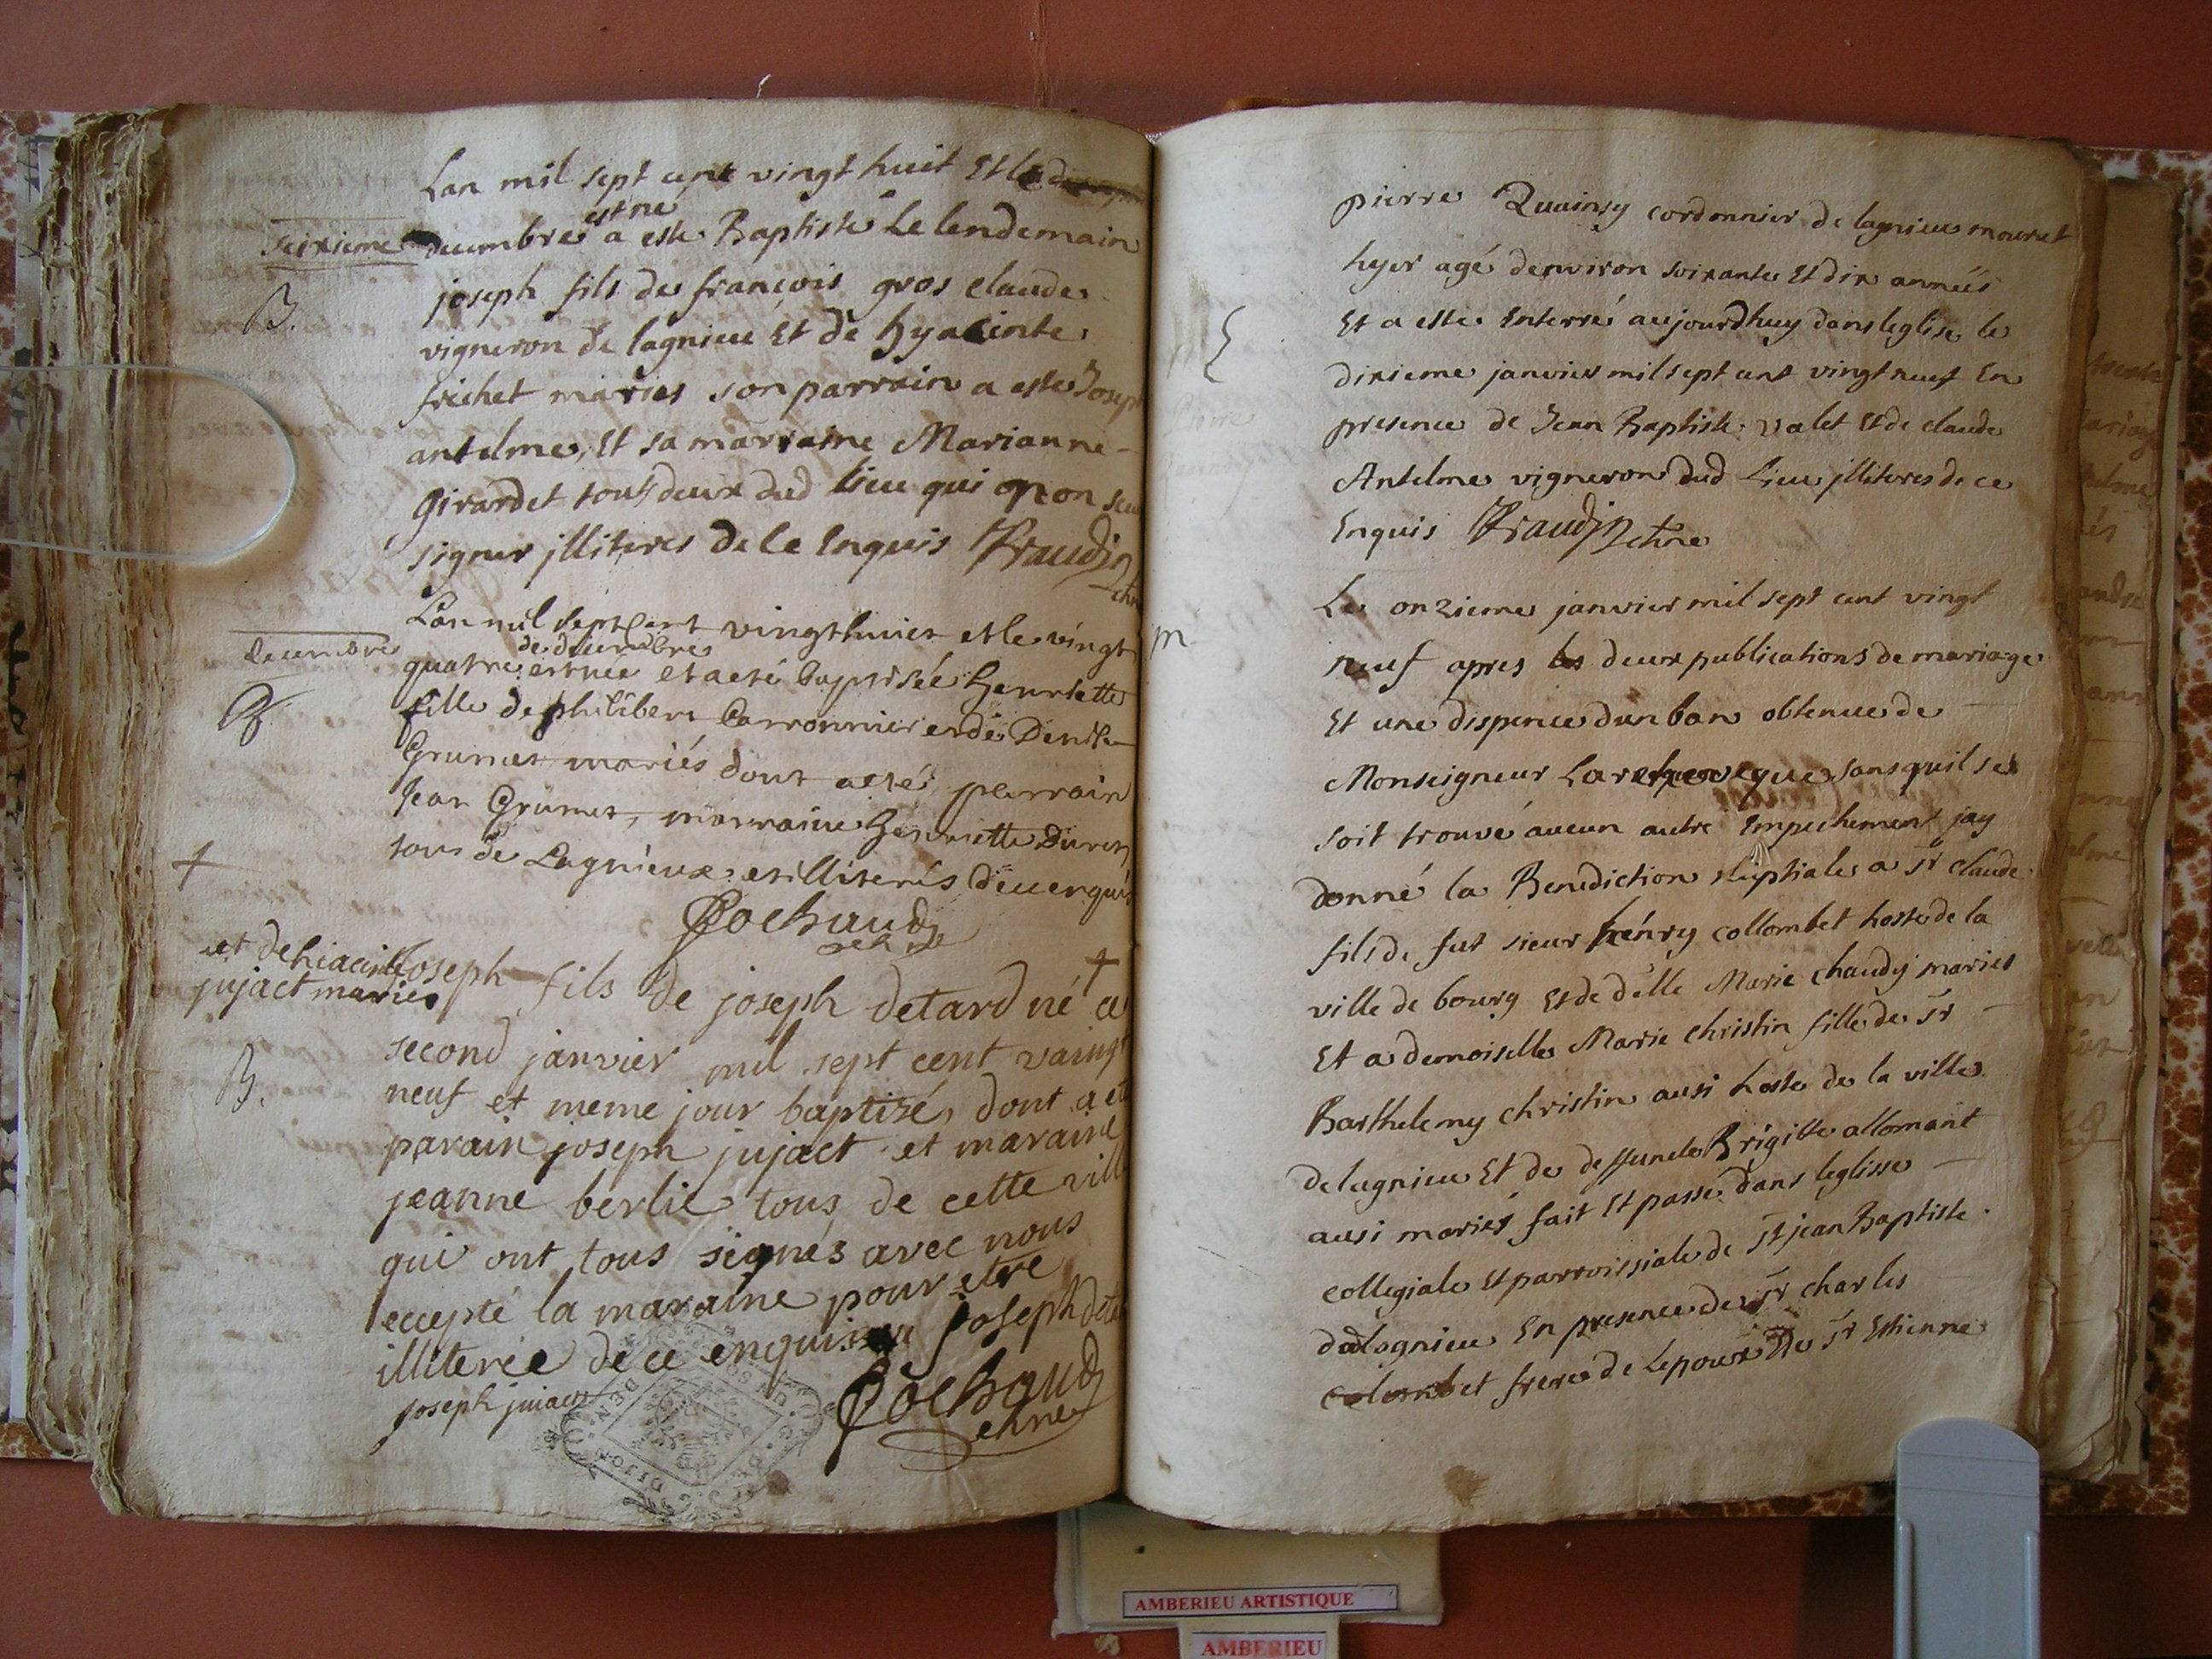 Lan mil sept cent vingt huit Et le
est ne
seixieme decembre a este Baptiste Le lendemain
B.
joseph fils de francois gros claude
vigneron de lagnieu Et de hyacinte
frichet maries son parrain a este Joseph
antelme, Et sa marraine Marianne
Girardet tous deux dud lieu qui non sceu
signer jlliteres de ce Enquis Fraudin
chne
Lan mil sept cent vingt huict et le vingt
de decembre
decembre
quatre est née et a eté baptisée henriette
B
fille de philibert Carronnier et de Denise
Grumet mariés dont a eté parrain
Jean Grumet, marraine henriette Duret
tous de Lagnieux et illiterés de ce enquis
+
Cochaud
chne
et de hiacinte
jujact maries
joseph fils de joseph detard né + ce
second janvier mil sept cent vaingt
B.
neuf et meme jour baptizé, dont a eté
parain joseph jujact et maraine
jeanne berlie tous de cette ville
qui ont tous signés avec nous
eccepté la maraine pour etre
illiterée de ce enquise joseph
joseph jujact
Cochaud
chne
DIJON
pierre Quainsy cordonnier de lagnieu mourut
hyer agé denviron soixante Et dix années
Et a esté Enterré aujourdhuy dans leglise le
dixieme janvier mil sept cent vingt neuf En
presence de Jean Baptiste valet Et de claude
Antelme vigneron dud Lieu jlliteres de ce
Enquis Fraudin chne
Le onzieme janvier mil sept cent vingt
m
neuf apres les deux publications de mariage
Et une dispence dun ban obtenue de
Monseigneur Larcheveque sans quil se
soit trouvé aucun autre Empechement jay
donné la Benediction Nuptiale a sr claude
fils de fut sieur henry collombet hoste de la
ville de bourg Et de delle Marie chaudy maries
Et a demoiselle Marie christin fille de sr
Barthelemy christin ausi hoste de la ville
de lagnieu Et de deffuncte Brigitte allomant
ausi mariés fait Et passé dans leglisse
collegiale Et parroissiale de st jean Baptiste
dud lagnieu En presence de sr charles
colombet frere de Lepoux De sr Estienne
AMBERIEU ARTISTIQUE
AMBERIEU